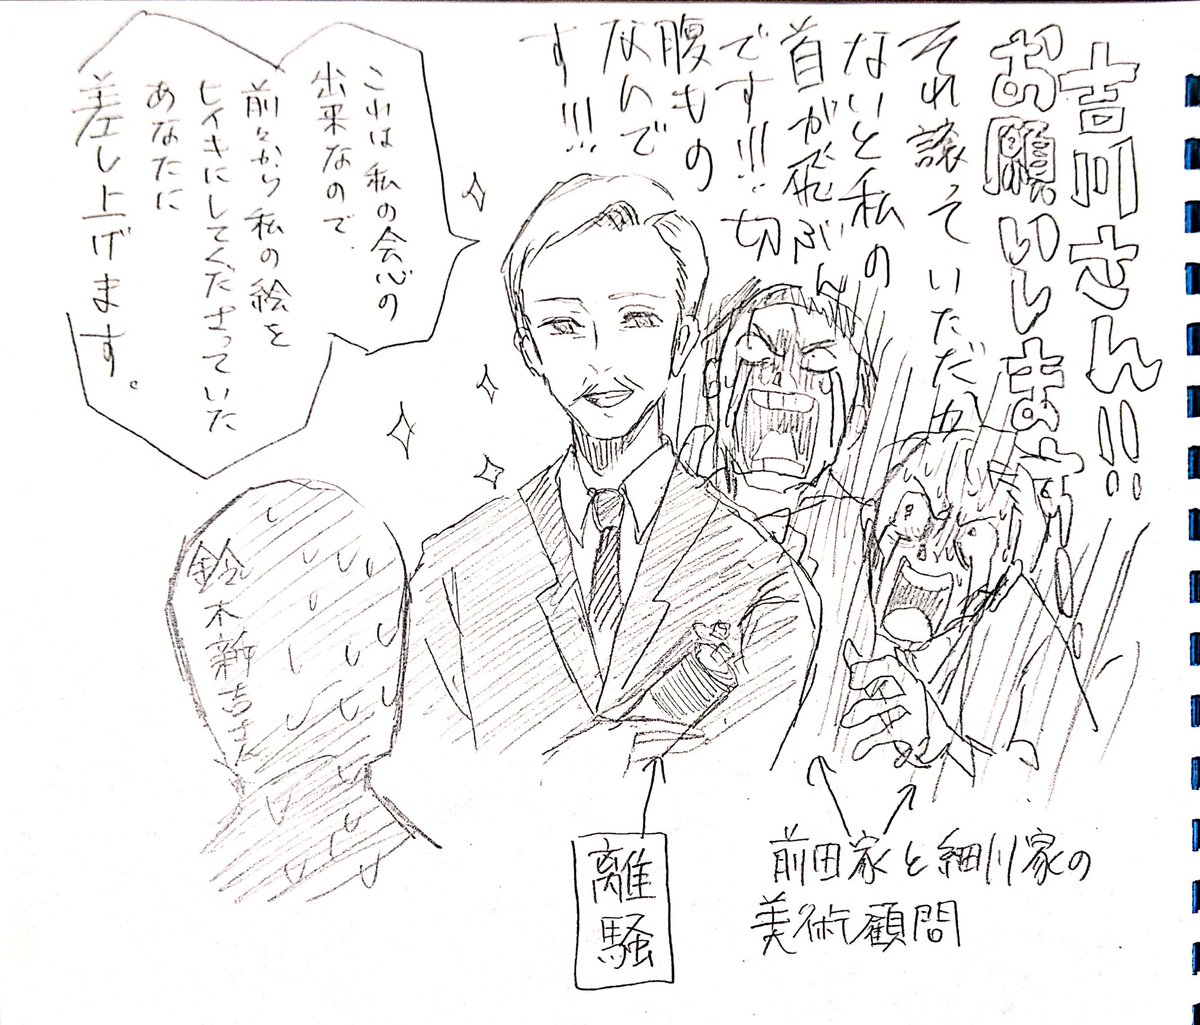 吉川さん!!
お願いします!!
それ譲っていただか
ないと私の
首が飛ぶん
です!!!切
腹もの
なんで
す!!!
これは私の会心の
出来なので、
前々から私の絵を
ヒイキにしてくださっていた
あなたに
差し上げます。
鈴木新吉さん
離騒
前田家と細川家の
美術顧問